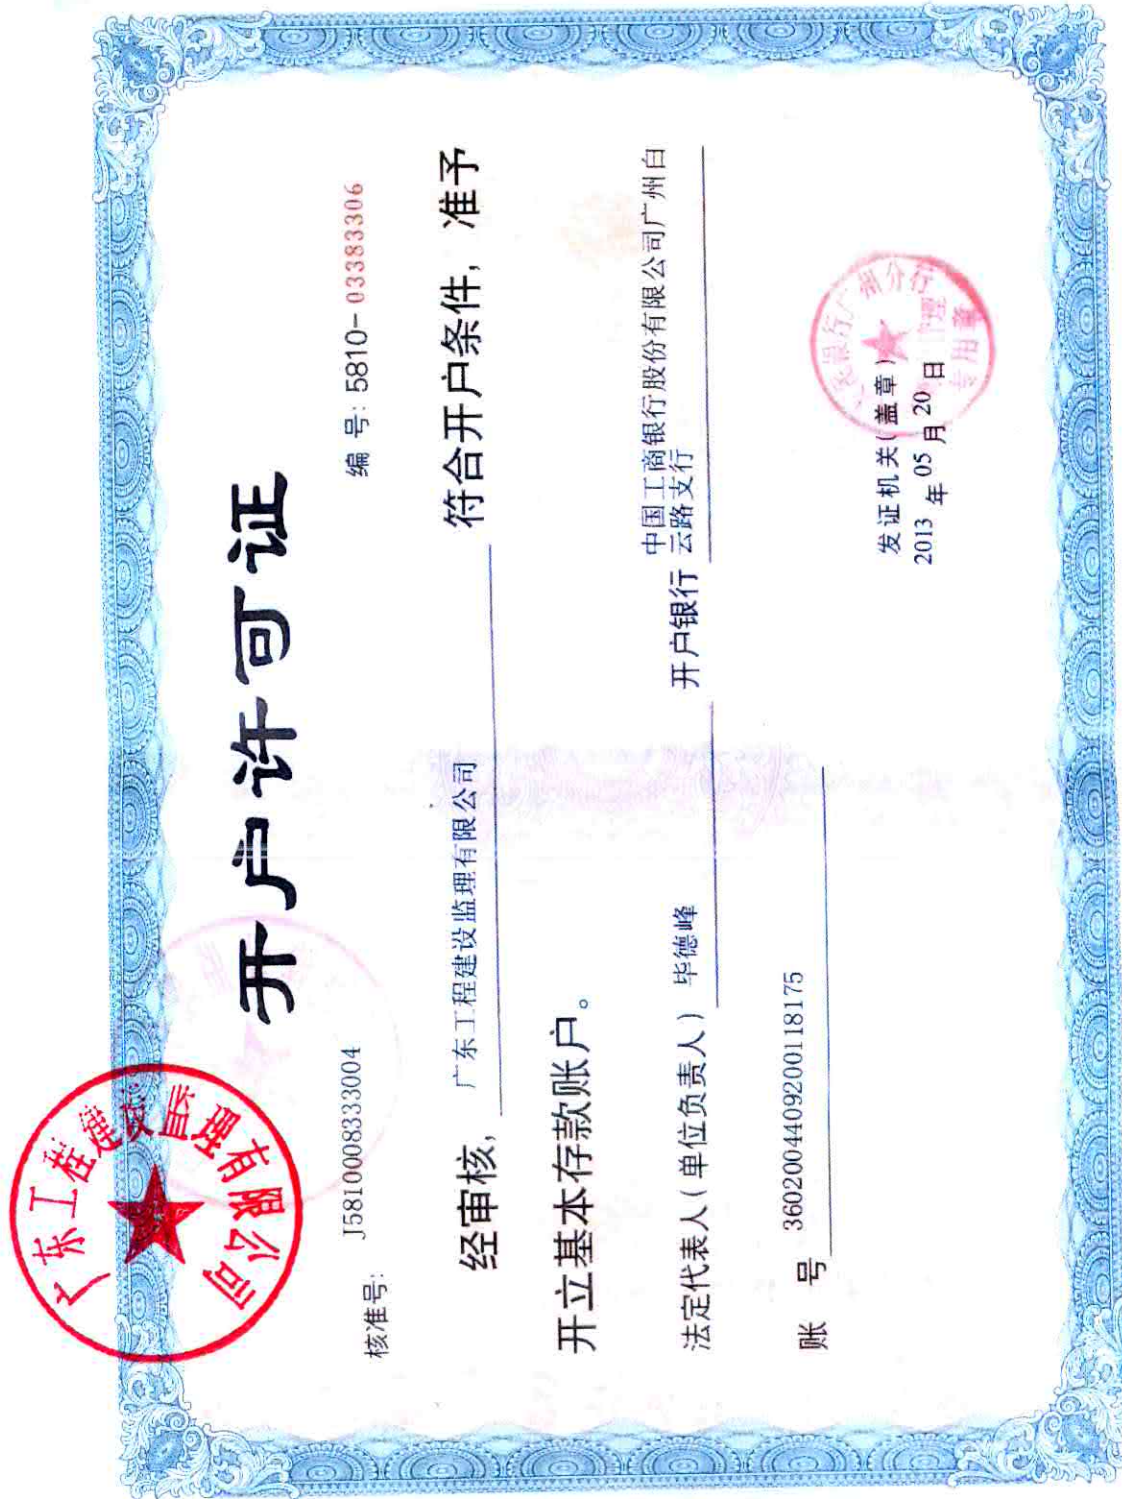 开户许可证
核准号: J5810008333004
编 号: 5810-03383306
经审核, 广东工程建设监理有限公司 符合开户条件, 准予
开立基本存款账户。
法定代表人(单位负责人) 毕德峰 开户银行 中国工商银行股份有限公司广州白
云路支行
账 号 3602004409200118175
发证机关(盖章)
2013 年 05 月 20 日
广东工程建设监理有限公司
民银行广州分行
管理
专用章